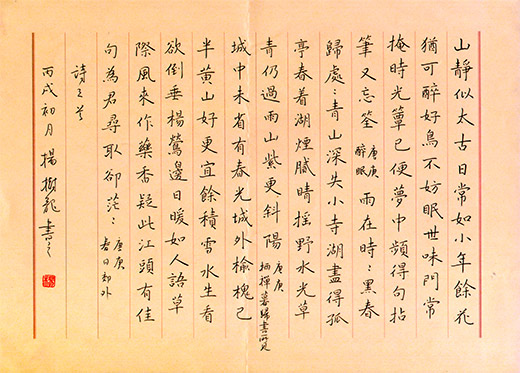 山靜似太古日常如小年餘花
猶可醉好鳥不妨眠世味門常
掩時光簟已便夢中頻得句拈
筆又忘筌 唐庚醉眠 雨在時〻黑春
歸處〻青山深失小寺湖盡得孤
亭春着湖煙膩晴搖野水光草
青仍過雨山紫更斜陽 唐庚栖禪暮歸書所見
城中未省有春光城外榆槐已
半黃山好更宜餘積雪水生看
欲倒垂楊鶯邊日暖如人語草
際風來作藥香疑此江頭有佳
句為君尋取卻茫〻 唐庚春日郊外
詩三首
丙戌初月 楊樹龍書之